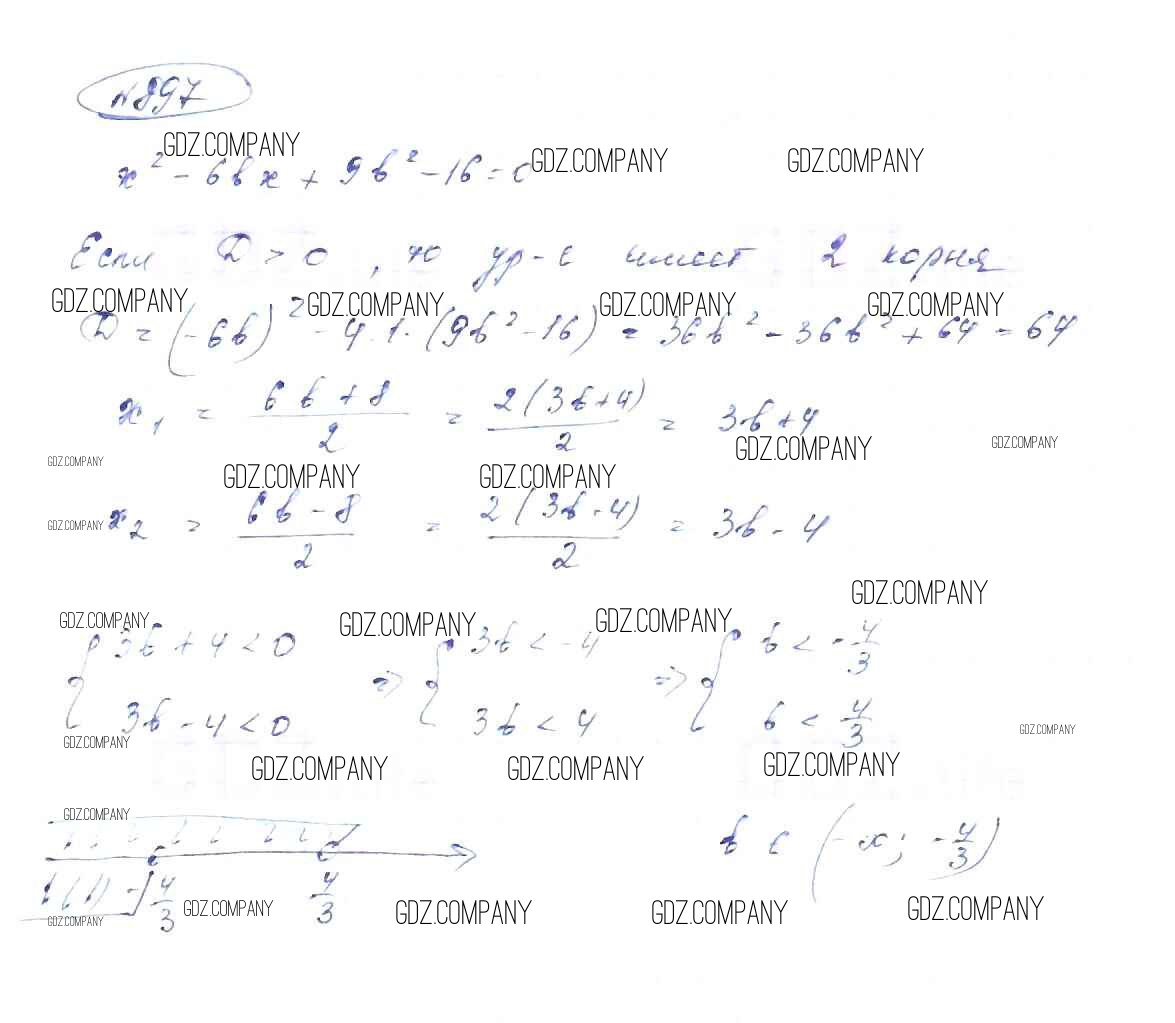 №897
GDZ.COMPANY GDZ.COMPANY GDZ.COMPANY
x² - 6bx + 9b² - 16 = 0
Если D > 0, то ур-е имеет 2 корня
GDZ.COMPANY GDZ.COMPANY GDZ.COMPANY GDZ.COMPANY
D = (-6b)² - 4·1·(9b² - 16) = 36b² - 36b² + 64 = 64
x₁ = (6b + 8)/2 = 2(3b + 4)/2 = 3b + 4
GDZ.COMPANY GDZ.COMPANY GDZ.COMPANY GDZ.COMPANY GDZ.COMPANY
GDZ.COMPANY x₂ = (6b - 8)/2 = 2(3b - 4)/2 = 3b - 4
GDZ.COMPANY
GDZ.COMPANY GDZ.COMPANY GDZ.COMPANY
{ 3b + 4 < 0 => { 3b < -4 => { b < -4/3
3b - 4 < 0 3b < 4 b < 4/3
GDZ.COMPANY GDZ.COMPANY
GDZ.COMPANY GDZ.COMPANY GDZ.COMPANY
GDZ.COMPANY
b ∈ (-∞; -4/3)
-4/3 4/3
GDZ.COMPANY GDZ.COMPANY GDZ.COMPANY GDZ.COMPANY GDZ.COMPANY